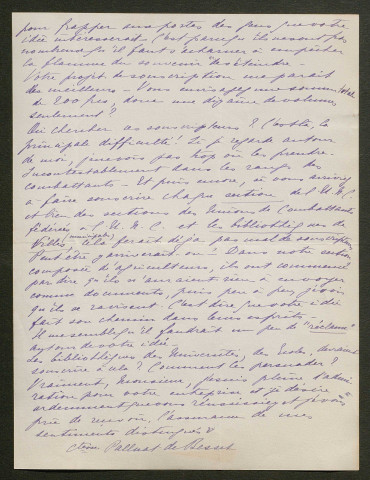 pour frapper aux portes des gens que votre
idée intéresserait. C'est parce qu'ils ne sont pas
nombreux qu'il faut s'acharner à empêcher
la flamme du souvenir de s'éteindre.
Votre projet de souscription me paraît
des meilleurs. Vous envisagez une somme totale
de 200 frs, donc une dizaine de volumes,
seulement?
Où chercher les souscripteurs? C'est là la
principale difficulté! Si je regarde autour
de moi, je ne vois pas trop où les prendre.
Incontestablement dans les rangs des
combattants. Et puis encore, si vous arrivez
à faire souscrire chaque section de l'U.N.C.
et bien des sections des Unions de Combattants
fédérées à l'U.N.C. et les bibliothèques de
villes, municipales, cela ferait déjà pas mal de souscriptions
Peut-être y arriverait-on! Dans notre section
composée d'agriculteurs, ils ont commencé
par dire qu'ils n'auraient rien à envoyer
comme documents, puis peu à peu, voici
qu'ils se ravisent. C'est dire que votre idée
fait son chemin dans leurs esprits.
Il me semble qu'il faudrait un peu de "réclame"
autour de votre idée.
Les bibliothèques des Universités, des Écoles, devraient
souscrire à cela? Comment les persuader?
Vraiment, Monsieur, je suis pleine d'admi
ration pour votre entreprise et je désire
ardemment que vous réussissiez et je vous
prie de recevoir, l'assurance de mes
sentiments distingués
Ctesse Palluat de Besset